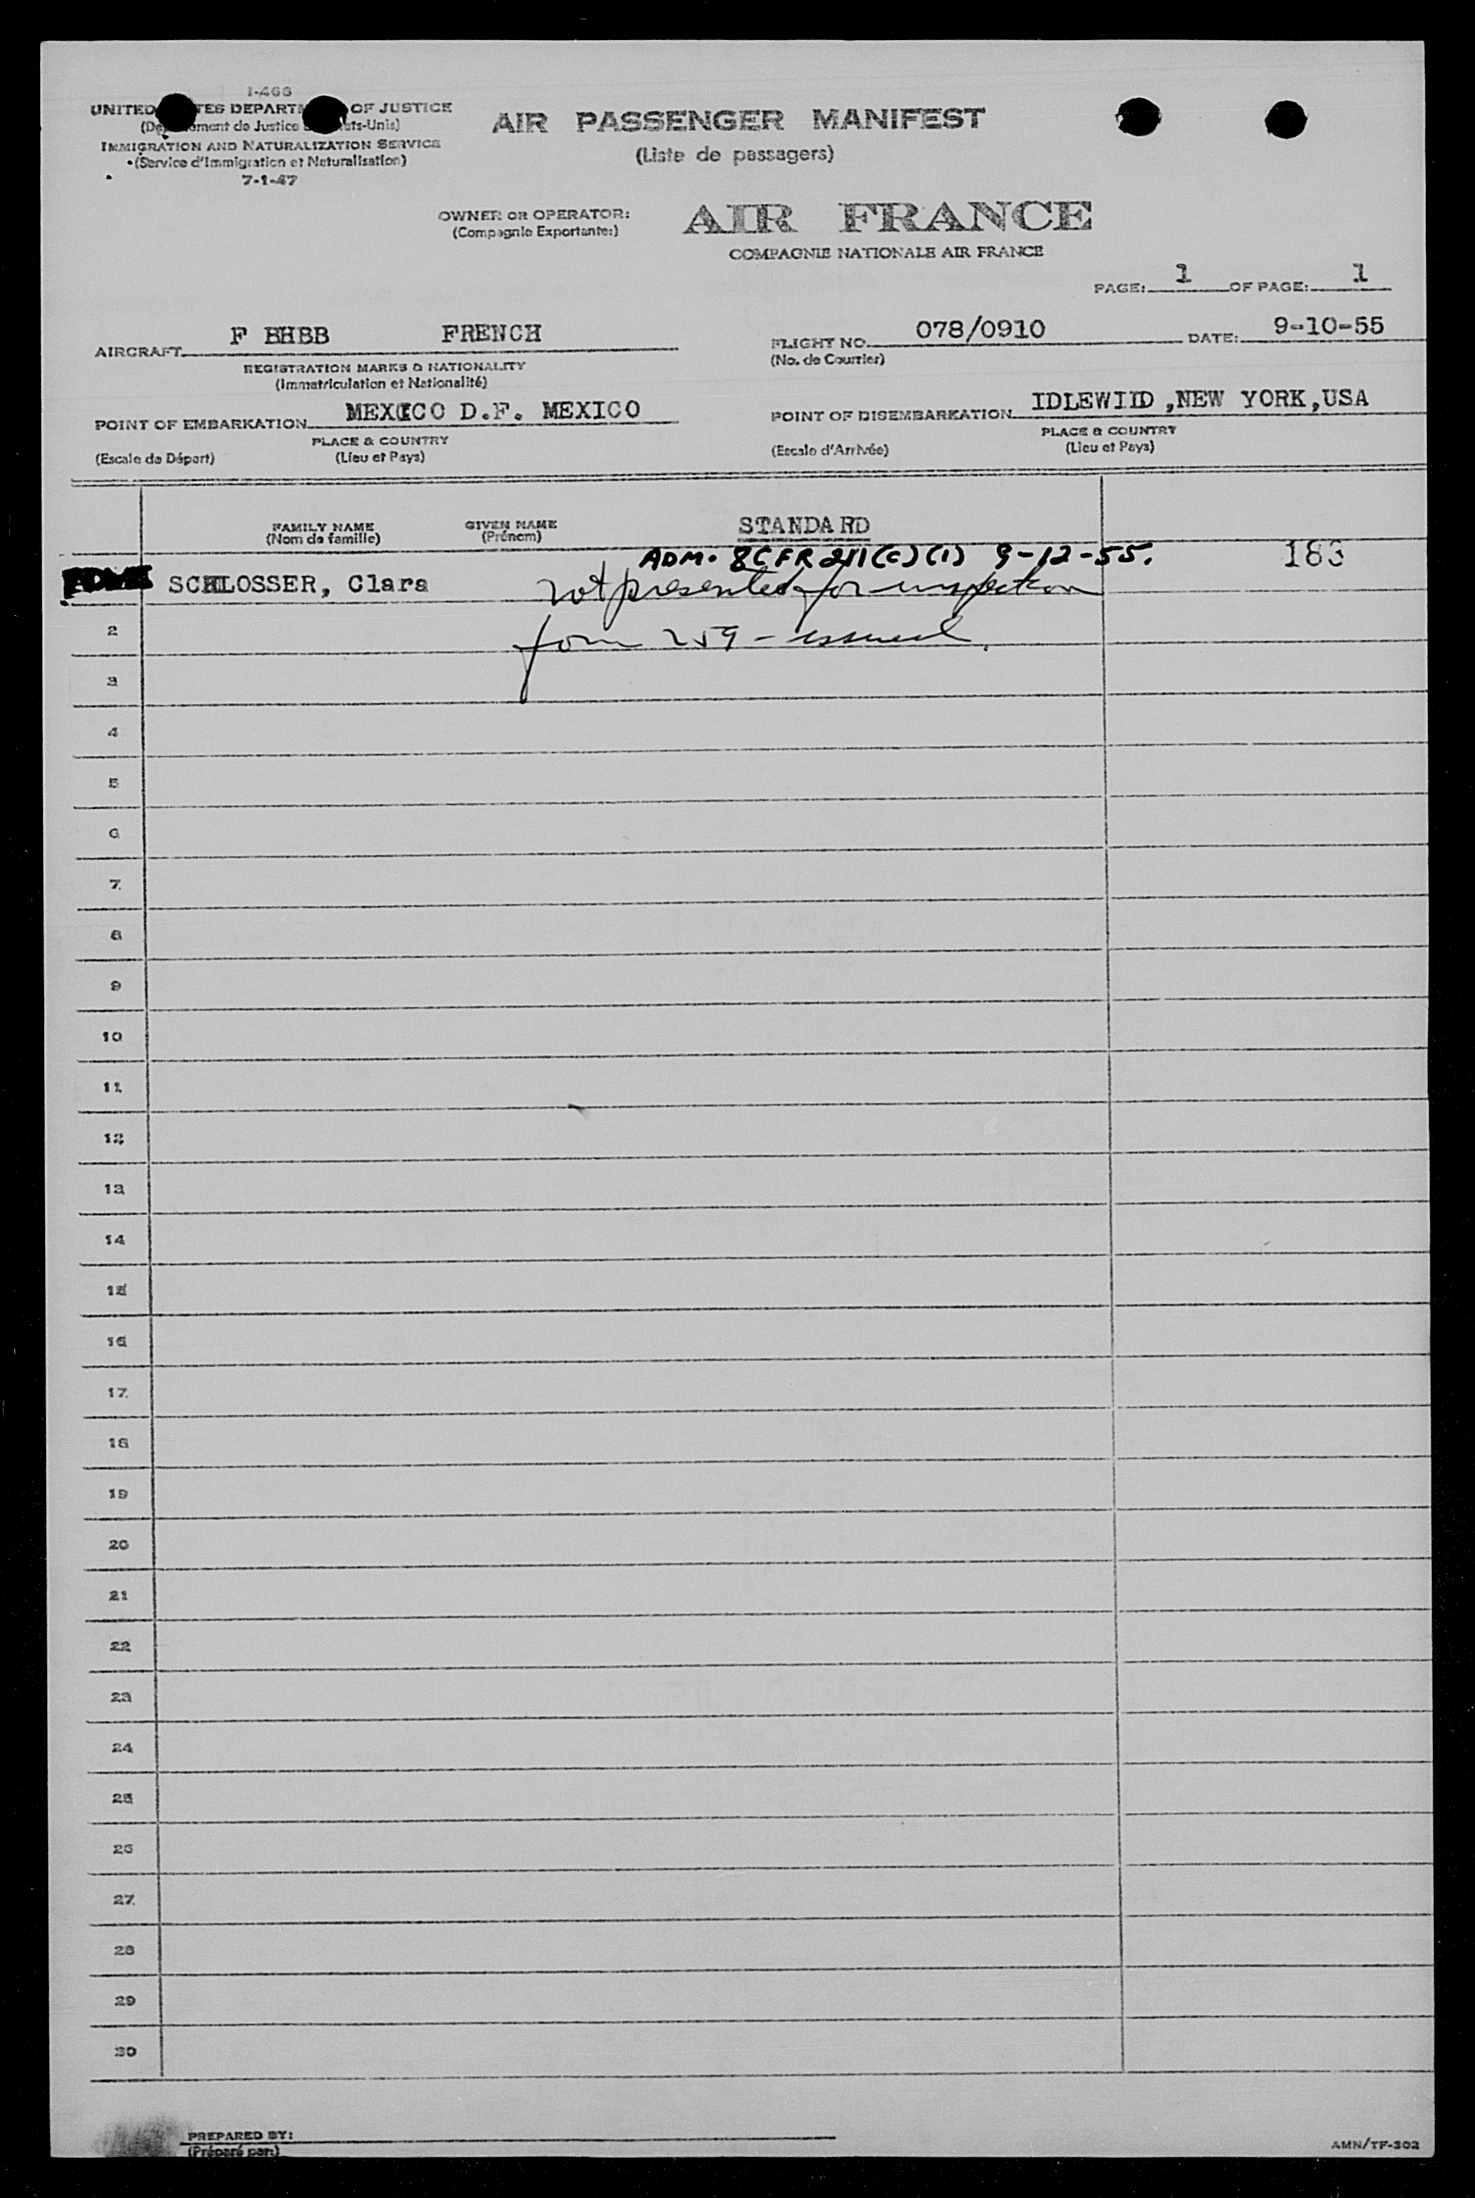 I-466
UNITED STATES DEPARTMENT OF JUSTICE
(Département de Justice Etats-Unis)
IMMIGRATION AND NATURALIZATION SERVICE
(Service d'Immigration et Naturalisation)
7-1-47
AIR PASSENGER MANIFEST
(Liste de passagers)
OWNER OR OPERATOR:
(Compagnie Exportante:)
AIR FRANCE
COMPAGNIE NATIONALE AIR FRANCE
PAGE: 1 OF PAGE: 1
AIRCRAFT F BHBB FRENCH
REGISTRATION MARKS & NATIONALITY
(Immatriculation et Nationalité)
FLIGHT NO. 078/0910 DATE: 9-10-55
(No. de Courrier)
POINT OF EMBARKATION MEXICO D.F. MEXICO
PLACE & COUNTRY
(Escale de Départ) (Lieu et Pays)
POINT OF DISEMBARKATION IDLEWIID ,NEW YORK,USA
PLACE & COUNTRY
(Escale d'Arrivée) (Lieu et Pays)
FAMILY NAME GIVEN NAME STANDARD
(Nom de famille) (Prénom)
ADM. 8CFR 211(c)(1) 9-12-55. 183
SCHLOSSER, Clara not presented for inspection
2 form 259 - issued.
3
4
5
6
7
8
9
10
11
12
13
14
15
16
17
18
19
20
21
22
23
24
25
26
27
28
29
30
PREPARED BY:
(Préparé par:)
AMN/TF-302